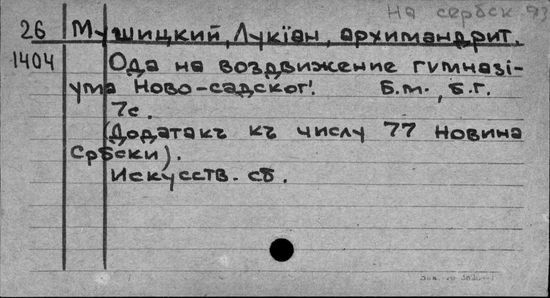 На сербск. яз
26 Мушицкий, Лукïан, архимандрит.
1404 Ода на воздвижение гимназi-
ума Ново-садског! Б.м., б.г.
7с.
(Додатакъ къ числу 77 Новина
Србски).
Искусств. сб.